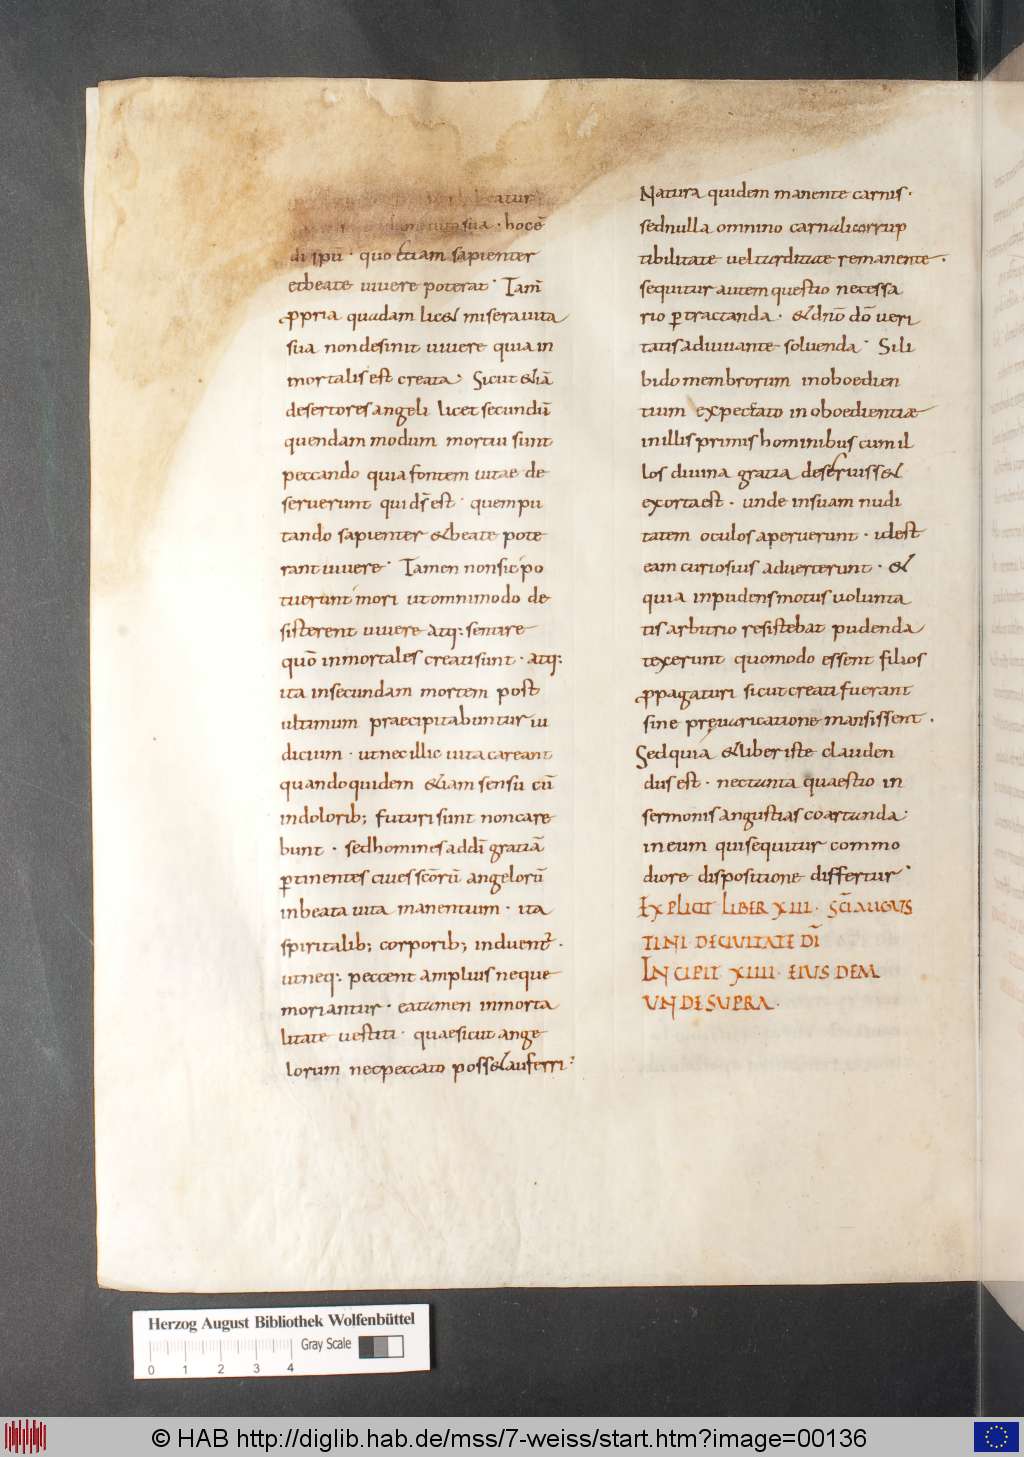 catur
uita sua · hocē
di spū · quo etiam sapienter
etbeate uiuere poterat · Tam̄
ꝓpria quadam licet miserauita
sua nondesinit uiuere quia in
mortalis est creata; Sicut etiā
desertores angeli licet secundū
quendam modum mortui sunt
peccando quia fontem uitae de
seruerunt qui dš est · quem pu
tando sapienter etbeate pote
rant uiuere · Tamen non sic po
tuerunt mori ut omnimodo de
sisterent uiuere atq: sentire
quō inmortales creati sunt · atq:
ita insecundam mortem post
ultimum praecipitabuntur iu
dicium · ut nec illic uita careant
quando quidem etiam sensu cū
indolorib; futuri sunt noncare
bunt · sed homines addī gratiā
ꝑtinentes ciues scōrū angelorū
inbeata uita manentium · ita
spiritalib; corporib; induent̄ ·
utneq: peccent amplius neque
moriantur · ea tamen inmorta
litate uestiti · quae sicut ange
lorum nec peccato posset auferri:
Natura quidem manente carnis ·
sed nulla omnino carnali corrup
tibilitate uel tarditate remanente ·
sequitur autem questio necessa
rio ꝑtractanda · et dn̄o dō ueri
tatis adiuuante soluenda · Si li
bido membrorum inoboedien
tium ex peccato inoboedientiæ
in illis primis hominibus cum il
los diuina gratia deseruisset
exorta est · unde in suam nudi
tatem oculos aperuerunt · id est
eam curiosius aduerterunt · et
quia inpudens motus uolunta
tis arbitrio resistebat pudenda
texerunt quomodo essent filios
ꝓpagaturi si cut creati fuerant
sine pręuaricatione mansissent ·
Sed quia et liber iste clauden
dus est · nec tanta quaestio in
sermonis angustias coartanda ·
in eum qui sequitur commo
diore dispositione differtur ·
EXPLICIT LIBER XIII · SCĪ AUGUS
TINI DE CIUITATE DĪ
INCIPIT XIIII · EIUSDEM
UNDE SUPRA ·
Herzog August Bibliothek Wolfenbüttel
Gray Scale
0 1 2 3 4
© HAB http://diglib.hab.de/mss/7-weiss/start.htm?image=00136